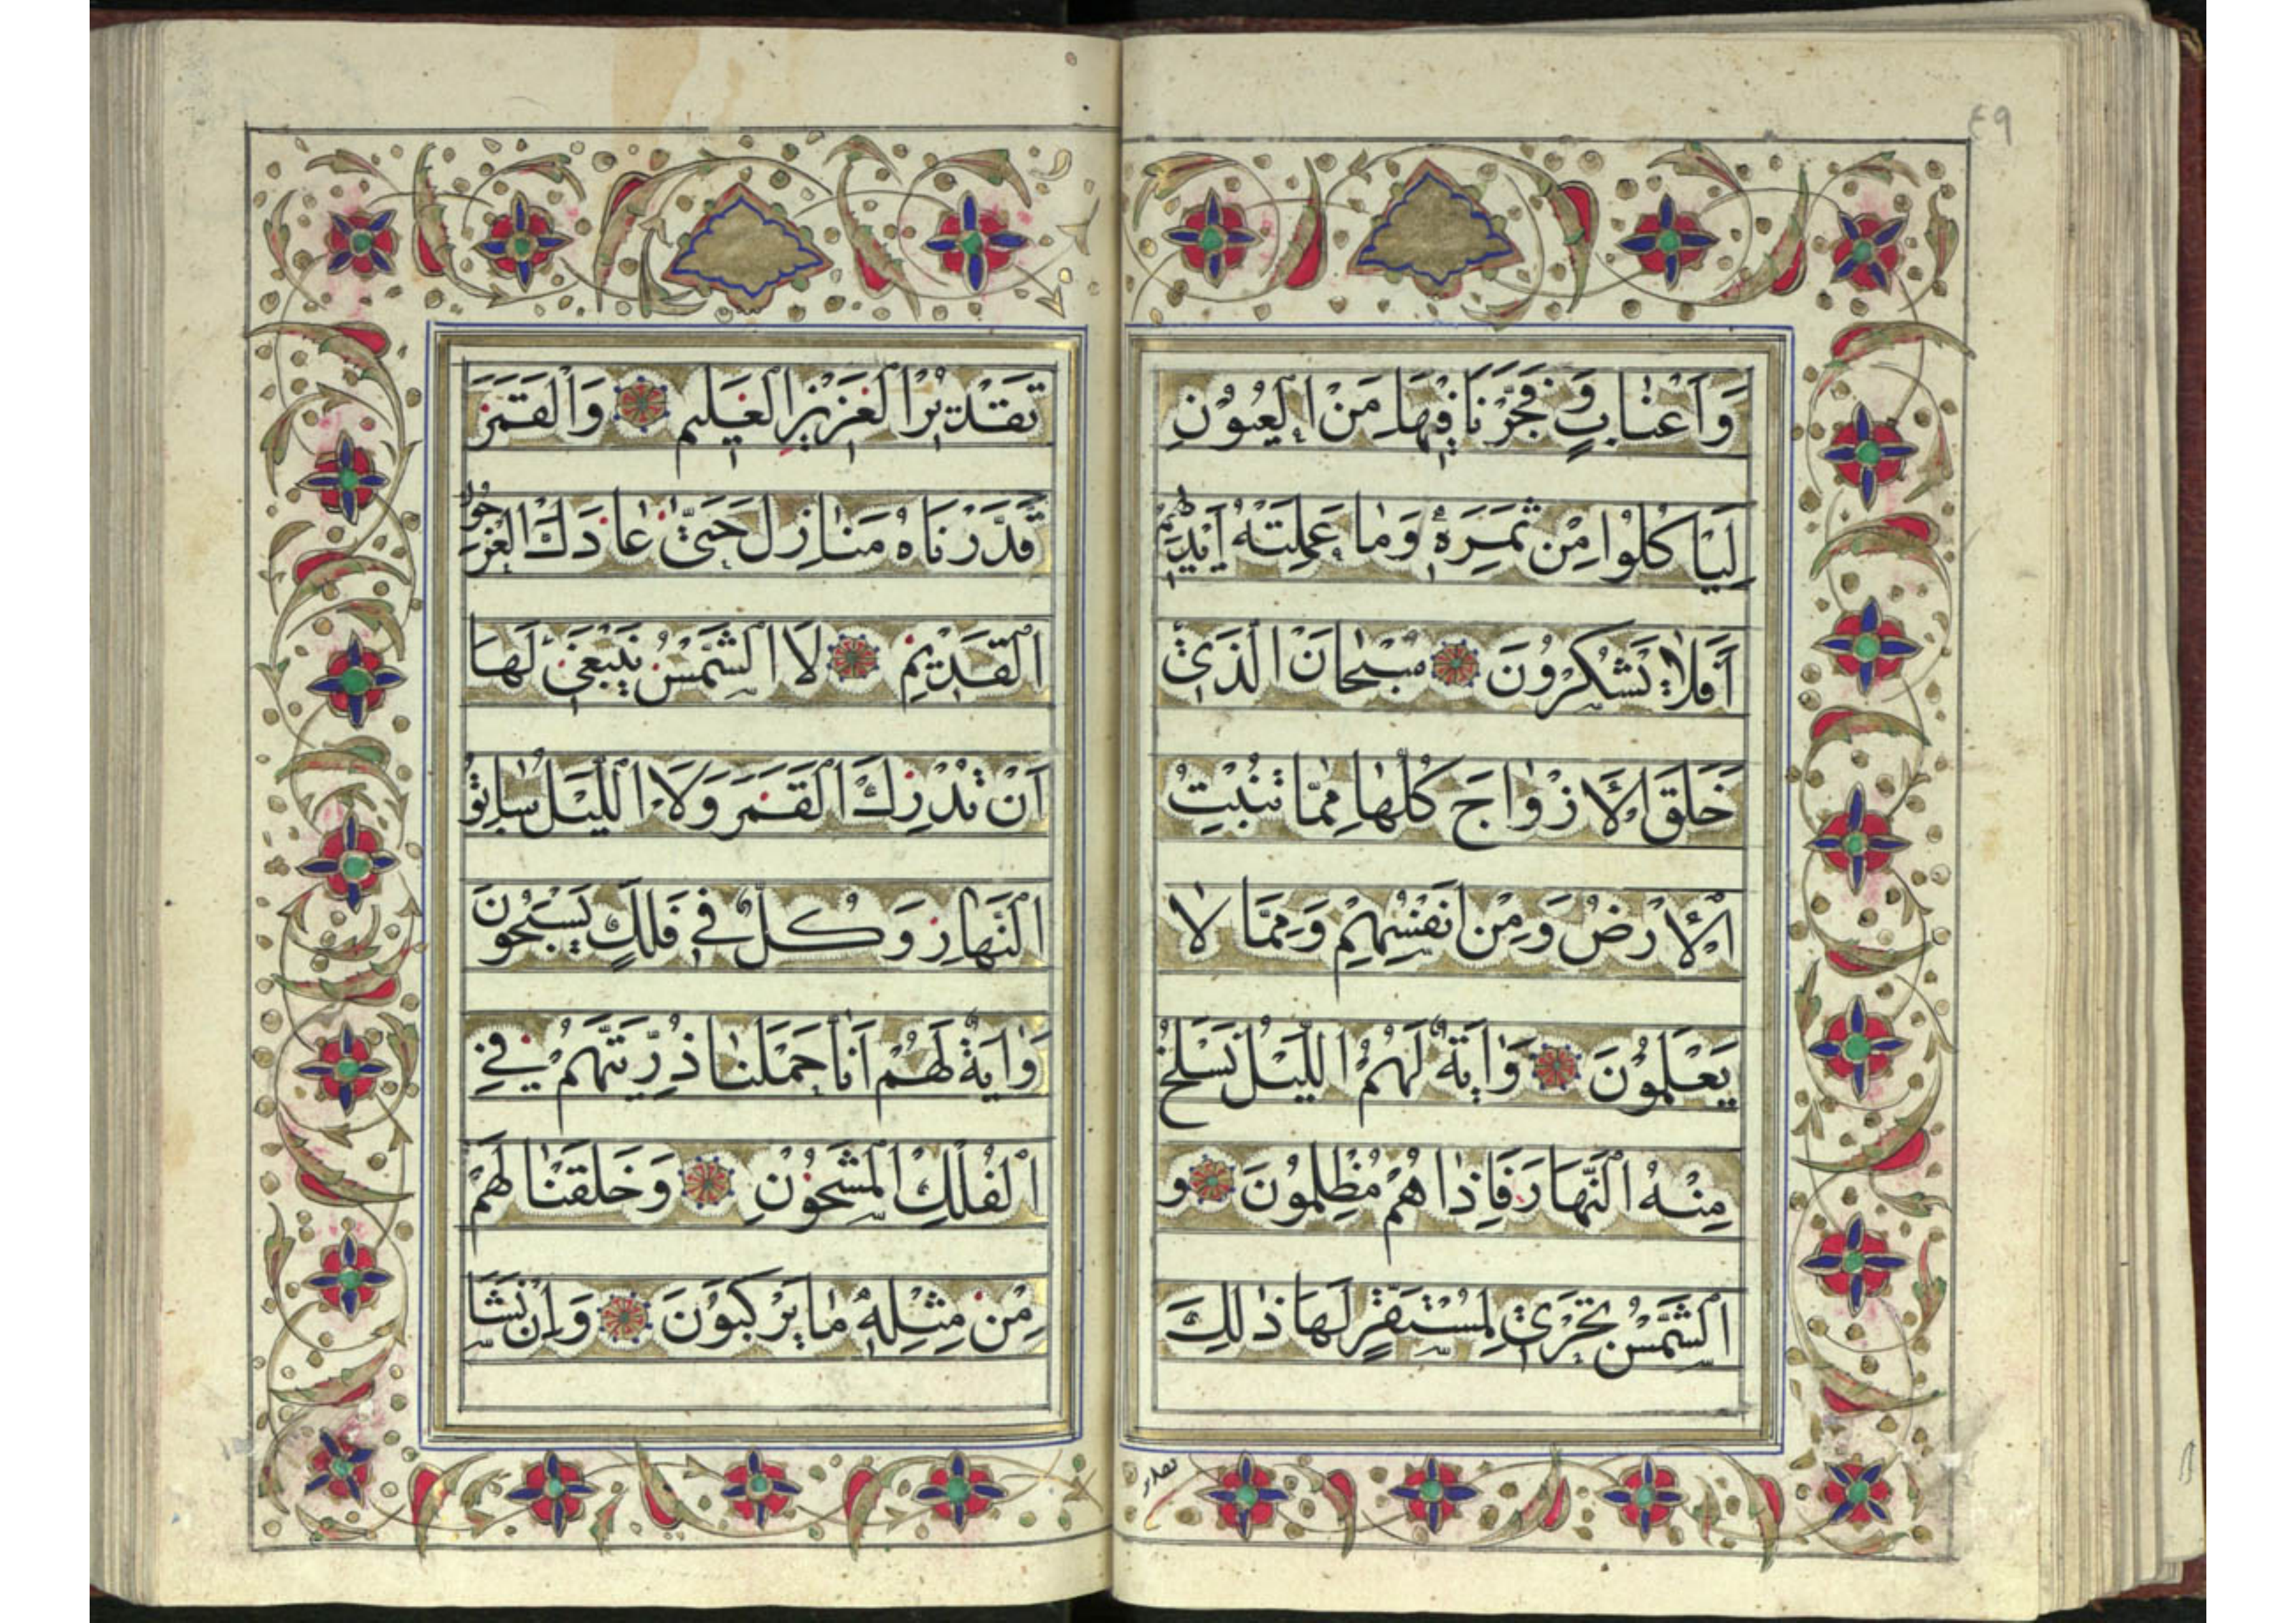 ٤٩
وَاَعْنٰابٍ وَفَجَّرْنَا فِيْهَا مِنَ الْعُيُوْنِ
لِيَاْكُلُوا مِنْ ثَمَرِهٖ وَمٰا عَمِلَتْهُ اَيْدِيْهِمْ
اَفَلاٰ يَشْكُرُوْنَ سُبْحٰانَ الَّذِيْ
خَلَقَ الْاَزْوٰاجَ كُلَّهٰا مِمَّا تُنْبِتُ
الْاَرْضُ وَمِنْ اَنْفُسِهِمْ وَمِمَّا لاٰ
يَعْلَمُوْنَ وَاٰيَةٌ لَهُمُ اللَّيْلُ نَسْلَخُ
مِنْهُ النَّهٰارَ فَاِذٰا هُمْ مُظْلِمُوْنَ و
الشَّمْسُ تَجْرِيْ لِمُسْتَقَرٍّ لَهَا ذٰلِكَ
تقدير
تَقْدِيْرُ الْعَزِيْزِ الْعَلِيْمِ وَالْقَمَرَ
قَدَّرْنَاهُ مَنٰازِلَ حَتّٰى عٰادَ كَالْعُرْجُوْنِ
الْقَدِيْمِ لَا الشَّمْسُ يَنْبَغِيْ لَهَا
اَنْ تُدْرِكَ الْقَمَرَ وَلَا اللَّيْلُ سٰابِقُ
النَّهٰارِ وَكُلٌّ فِيْ فَلَكٍ يَسْبَحُوْنَ
وَاٰيَةٌ لَهُمْ اَنّٰا حَمَلْنٰا ذُرِّيَتَهُمْ فِي
الْفُلْكِ الْمَشْحُوْنِ وَخَلَقْنٰا لَهُمْ
مِنْ مِثْلِهٖ مٰا يَرْكَبُوْنَ وَاِنْ نَشَا